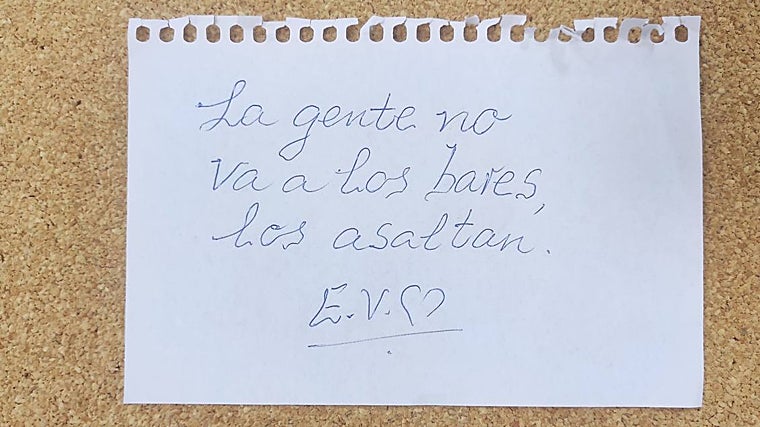 La gente no
va a los bares,
los asaltan.
E.V.